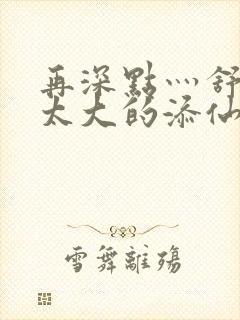 再深點灬舒
太大的添仙
雪舞離殤